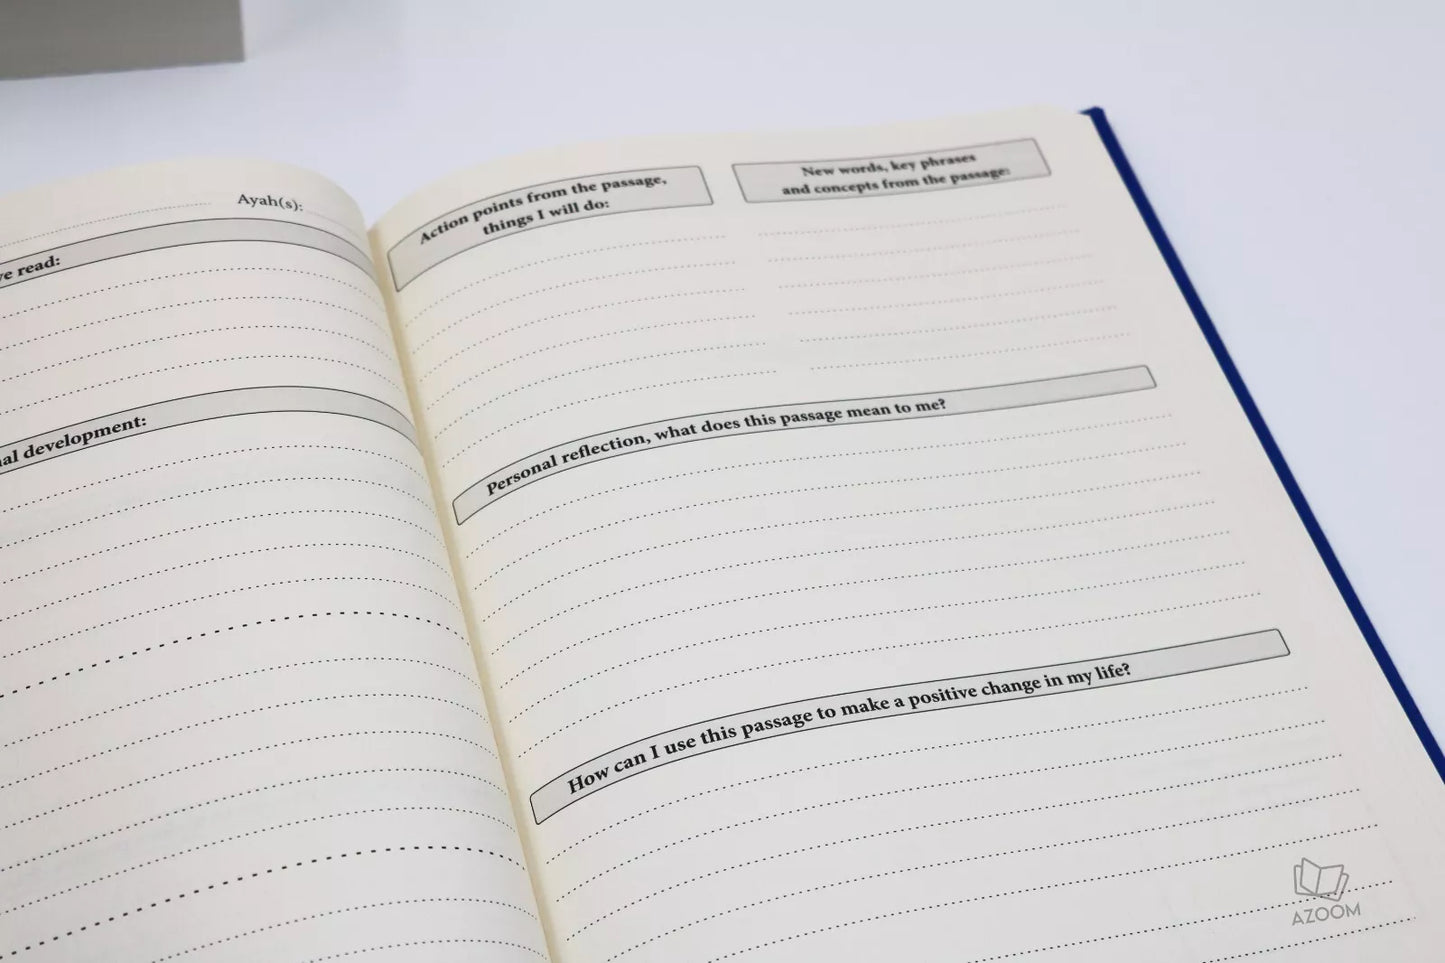 Ayah(s):
read:
development:
Action points from the passage,
things I will do:
New words, key phrases
and concepts from the passage:
Personal reflection, what does this passage mean to me?
How can I use this passage to make a positive change in my life?
AZOOM